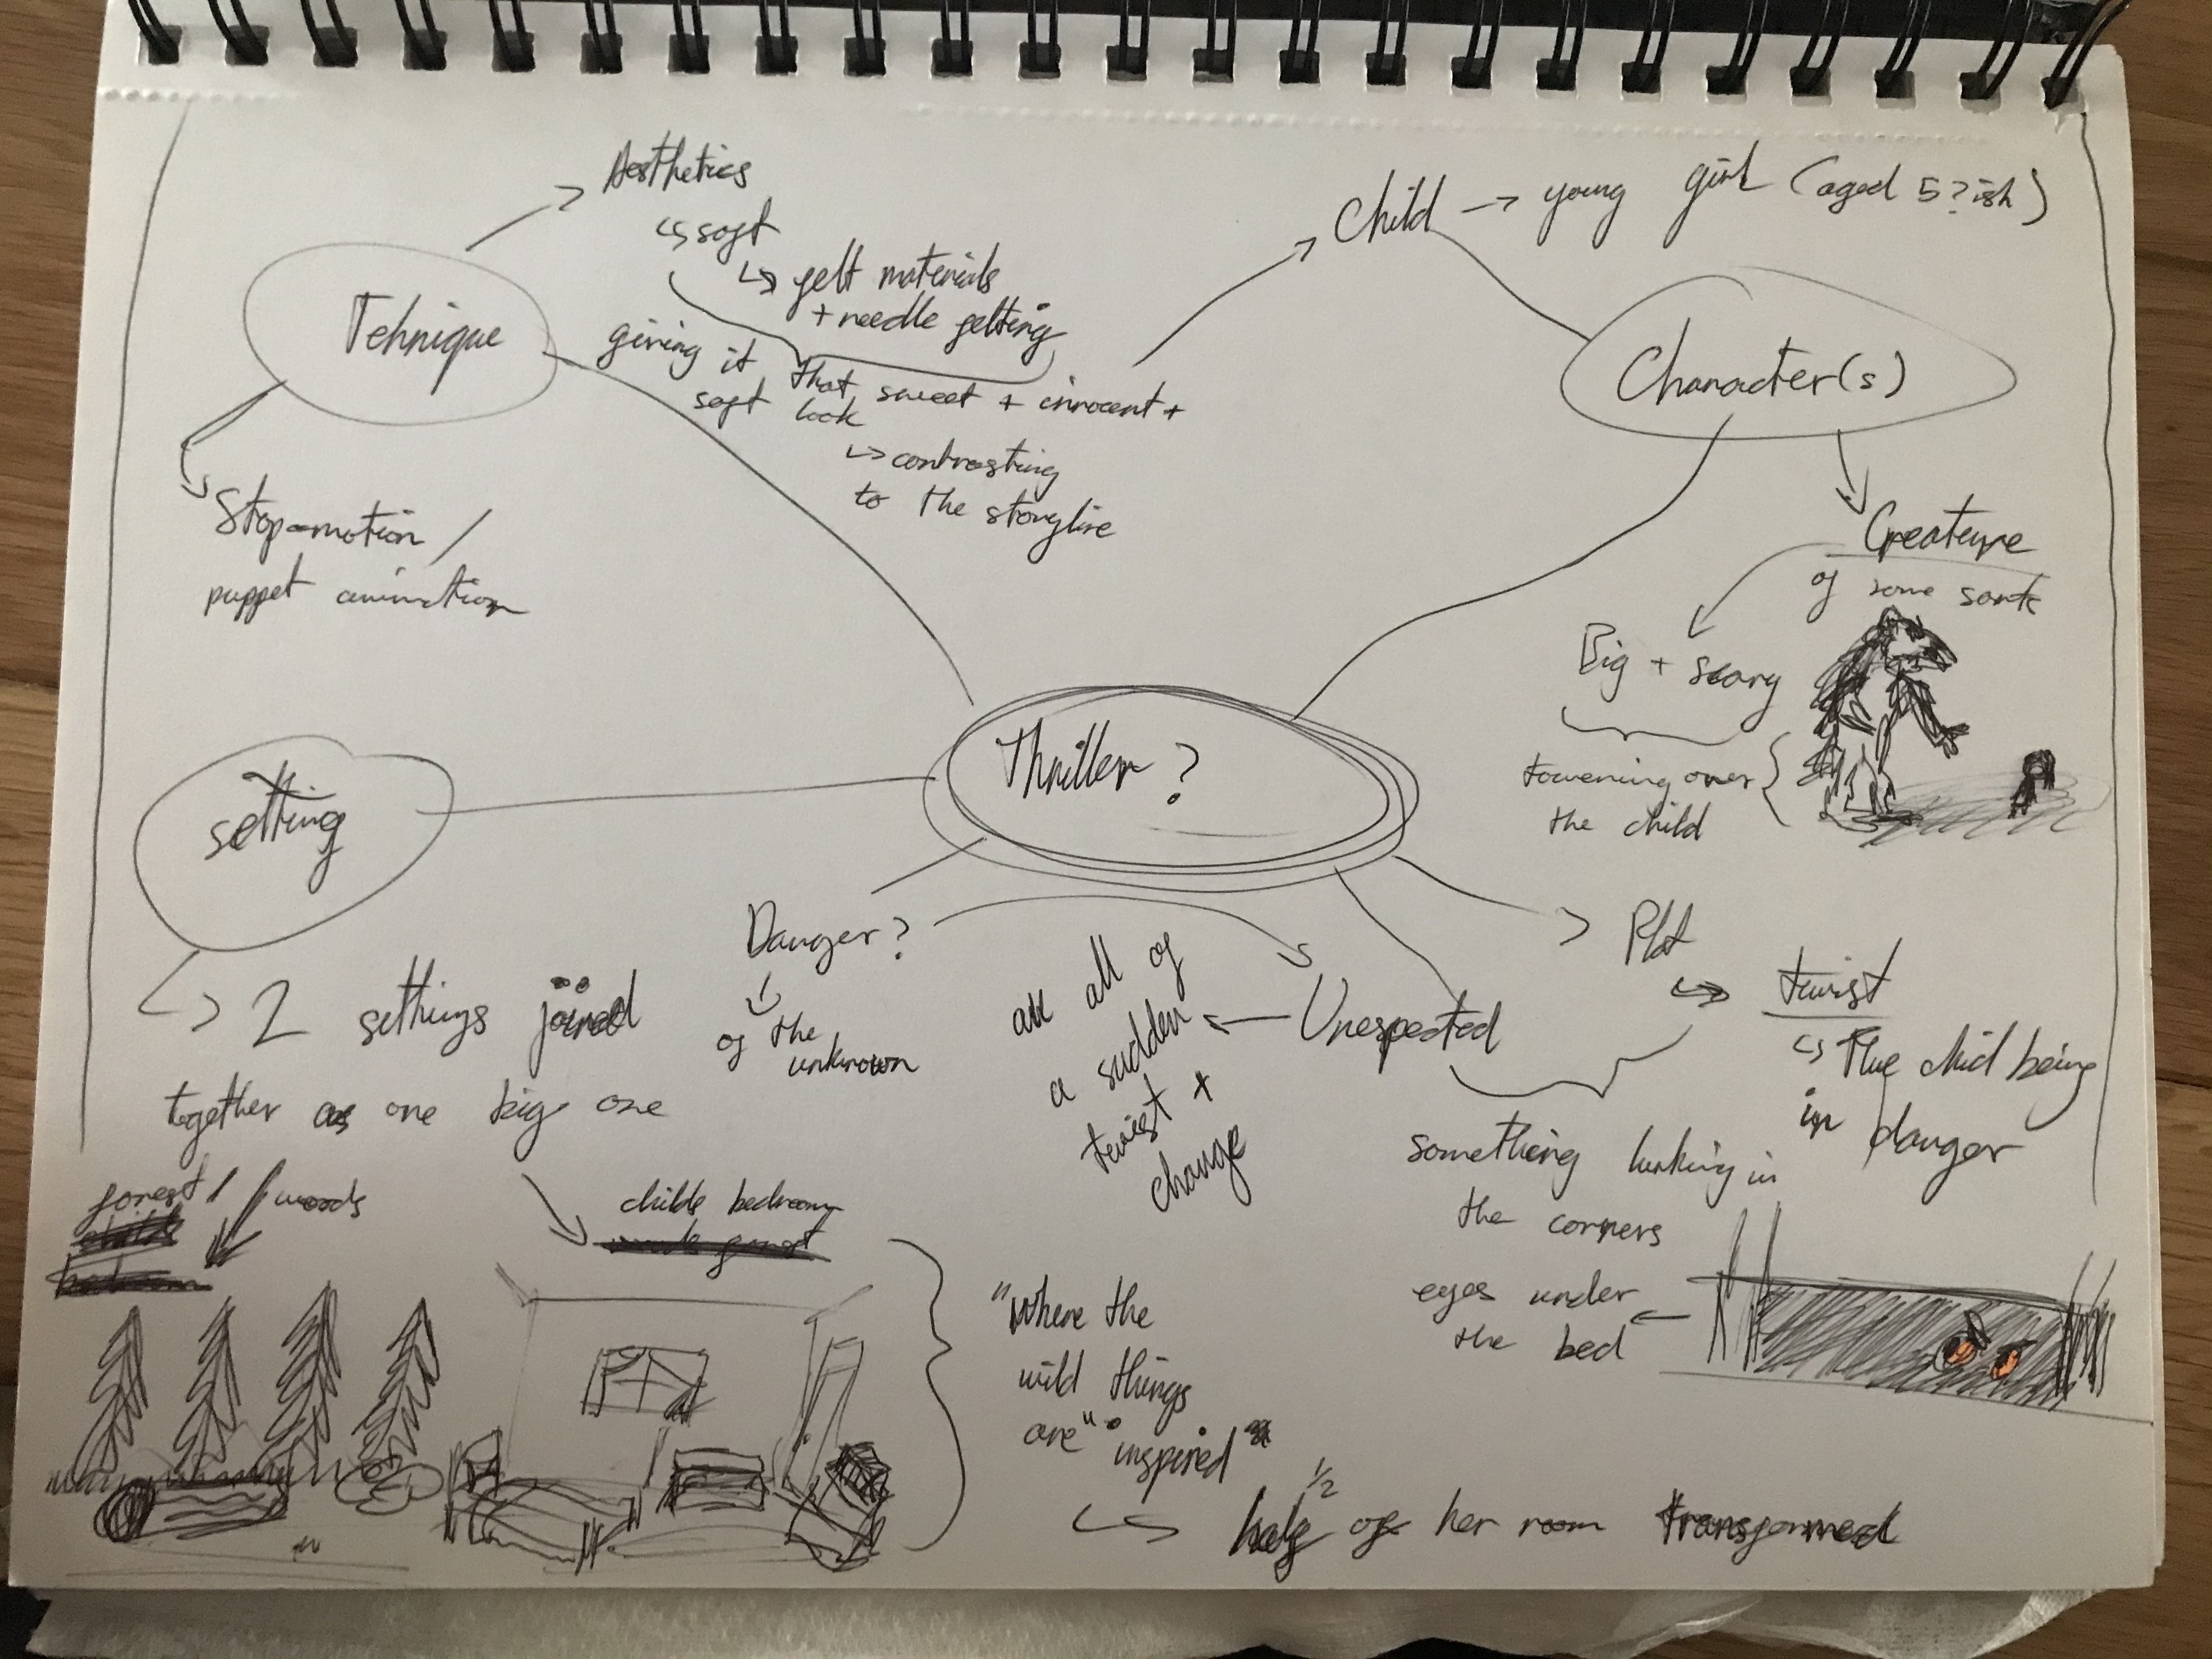 Aesthetics
↳ soft
↳ felt materials
+ needle felting
giving it that sweet + innocent +
soft look
↳ contrasting
to the storyline
Tehnique
Stop-motion /
puppet animation
Child → young girl (aged 5?ish)
Character(s)
Creature
of some sorts
Big + scary
towering over
the child
Thriller?
setting
↳ 2 settings joined
together as one big one
forest / woods
childs bedroom
Danger?
↓
of the
unknown
Unexpected
an all of
a sudden
twist +
change
Plot
↪ twist
↳ The chid being
in danger
something lurking in
the corners
eyes under
the bed
"Where the
wild things
are" "inspired"
↳ half 1/2 of her room transformed